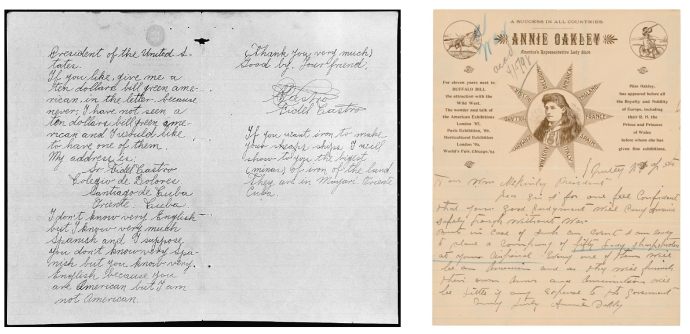 President of the United S-
tates.
If you like, give me a
ten dollars bill green ame-
rican, in the letter, because
never, I have not seen a
ten dollars bill green ame-
rican and I would like
to have one of them.
My address is:
Sr. Fidel Castro
Colegio de Dolores
Santiago de Cuba
Oriente. Cuba.
I don't know very English
but I know very much
Spanish and I suppose
you don't know very Spa-
nish but you know very
English because you
are American but I am
not American.
(Thank you very much)
Good by. Your friend,
Castro
Fidel Castro
If you want iron to make
your sheaps ships I will
show to you the biggest
(minas) of iron of the land.
They are in Mayari Oriente
Cuba.
A SUCCESS IN ALL COUNTRIES.
ANNIE OAKLEY
America's Representative Lady Shot.
For eleven years next to
BUFFALO BILL
the attraction with the
Wild West.
The wonder and talk of
the American Exhibition
London '87.
Paris Exhibition, '89.
Horticultural Exhibition
London '92.
World's Fair, Chicago, '93
Miss Oakley,
has appeared before all
the Royalty and Nobility
of Europe, including
their R. H. the
Prince and Princess
of Wales
before whom she has
given five exhibitions.
FRANCE
To Wm McKinley President
Dear Sir I for one feel Confident
that your good judgment will carry America
safely through without War
But in case of such an event I am ready
to place a Company of fifty lady sharpshooters
at your disposal. Every one of them will
be an American and as they will furnish
their own Arms and Ammunition will
be little if any expense to the Government
Very truly Annie Oakley